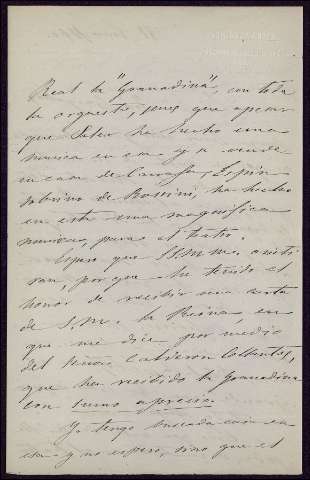 Real la "Granadina", con toda
la orquesta, pues que apesar
que Saben ha hecho una
musica en casa y se vende
en casa de Carrafa, Espin
sobrino de Rossini, ha hecho
en esta una magnifica
para el teatro.
Espero que SS.MM. asisti
ran, porque he tenido el
honor de recibir una carta
de S.M. la Reina, en
que me dice por medio
del Señor Calderon Collantes,
que ha recibido la Granadina
con sumo aprecio.
Yo tengo buscada casa en
esa y no espero, sino que el